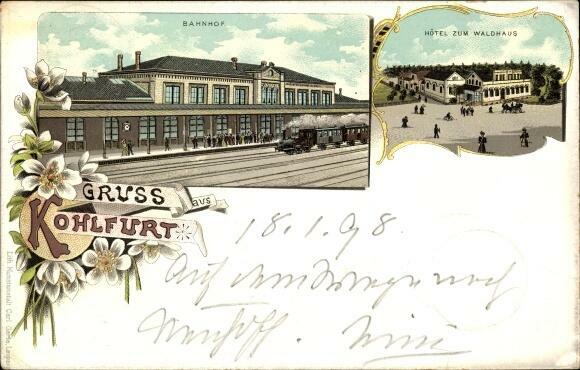 BAHNHOF
HÔTEL ZUM WALDHAUS
GRUSS aus
KOHLFURT
18.1.98.
Auf dem Wege nach
Lith. Kunstanstalt Carl Garte, Leipzig